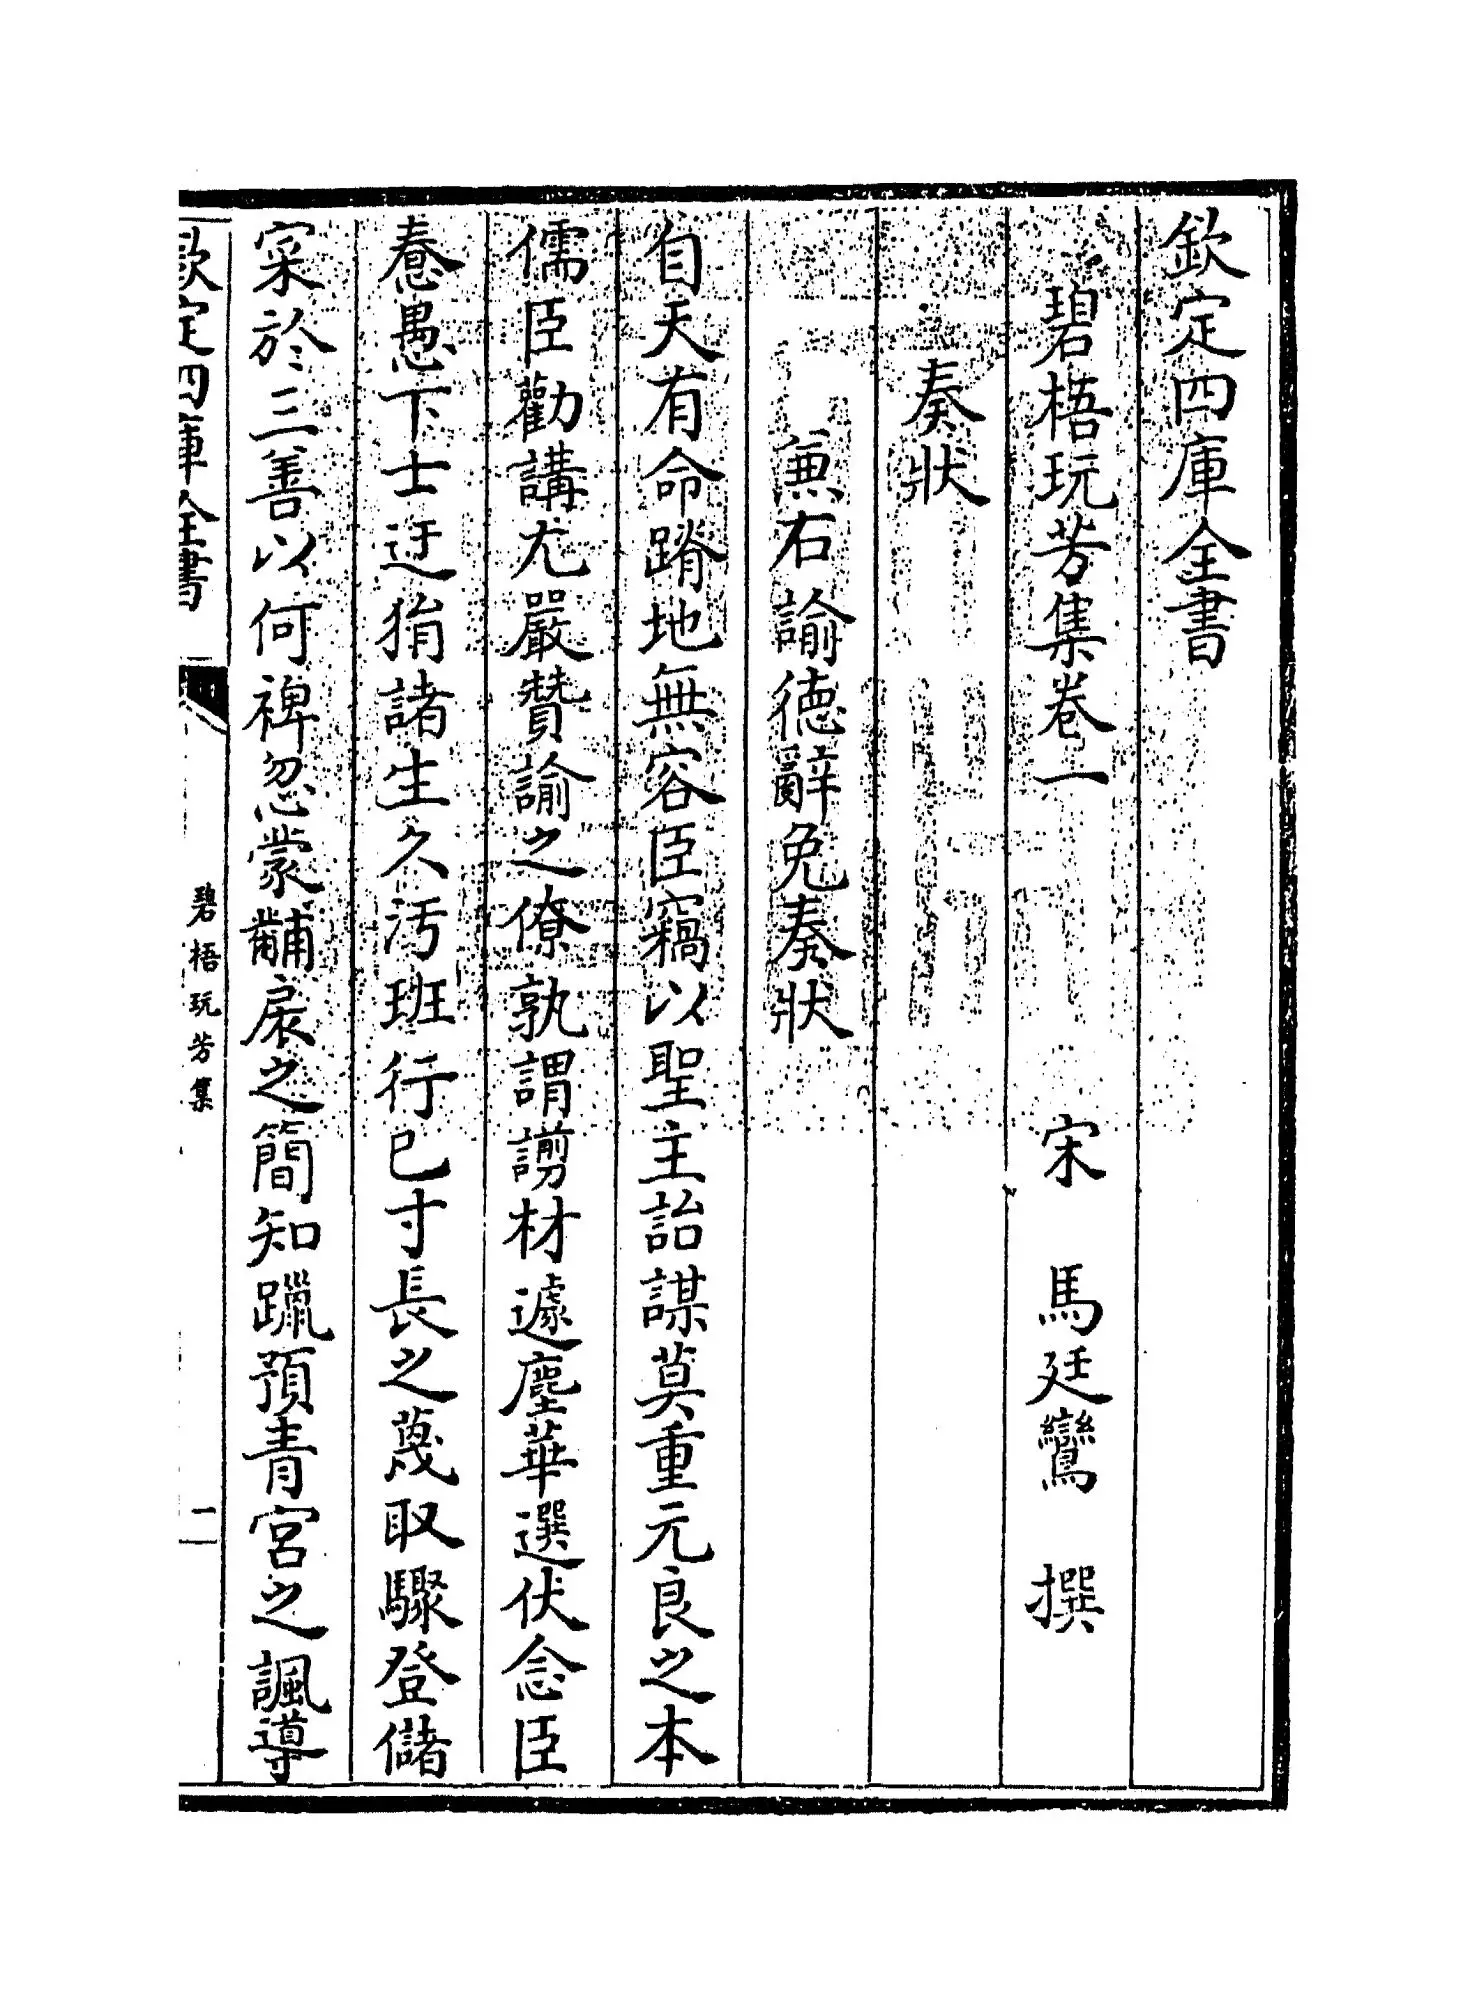 欽定四庫全書
碧梧玩芳集卷一
宋 馬廷鸞 撰
奏狀
兼右諭德辭免奏狀
自天有命蹐地無容臣竊以聖主詒謀莫重元良之本
儒臣勸講尤嚴贊諭之僚孰謂謭材遽塵華選伏念臣
惷愚下士迂狷諸生久汚班行已寸長之蔑取驟登儲
寀於三善以何裨忽蒙黼扆之簡知躐預青宮之諷導
欽定四庫全書
碧梧玩芳集